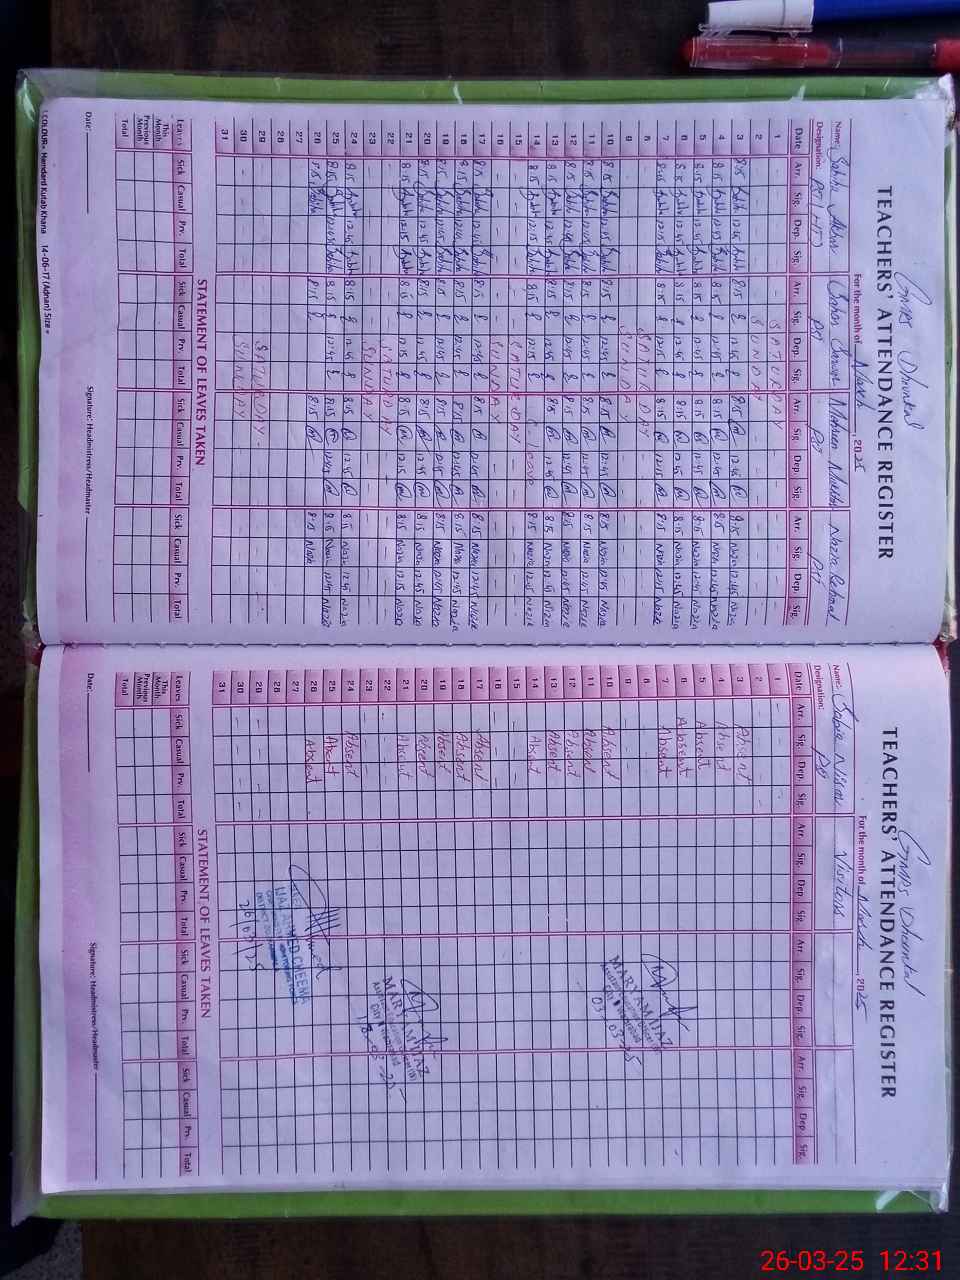 GMPS Dhuntal
TEACHERS' ATTENDANCE REGISTER
For the month of March, 2025
Name: Sabiha Akbar
Designation: PST
PST
PST
PST
Date Arr. Sig. Dep. Sig. Arr. Sig. Dep. Sig. Arr. Sig. Dep. Sig. Arr. Sig. Dep. Sig.
1 SATURDAY
2 SUNDAY
3 8:15 12:45 8:15 12:45 8:15 12:45 8:15 Nazia 12:45 Nazia
4 8:15 12:45 8:15 12:45 8:15 12:45 8:15 Nazia 12:45 Nazia
5 8:15 12:45 8:15 12:45 8:15 12:45 8:15 Nazia 12:45 Nazia
6 8:15 12:45 8:15 12:45 8:15 12:45 8:15 Nazia 12:45 Nazia
7 8:15 12:15 8:15 12:15 8:15 12:15 8:15 Nazia 12:15 Nazia
8 SATURDAY
9 SUNDAY
10 8:15 12:45 8:15 12:45 8:15 12:45 8:15 Nazia 12:45 Nazia
11 8:15 12:45 8:15 12:45 8:15 12:45 8:15 Nazia 12:45 Nazia
12 8:15 12:45 8:15 12:45 8:15 12:45 8:15 Nazia 12:45 Nazia
13 8:15 12:45 8:15 12:45 8:15 12:45 8:15 Nazia 12:45 Nazia
14 8:15 12:15 8:15 12:15 C. Leave 8:15 Nazia 12:15 Nazia
15 SATURDAY
16 SUNDAY
17 8:15 12:45 8:15 12:45 8:15 12:45 8:15 Nazia 12:45 Nazia
18 8:15 12:45 8:15 12:45 8:15 12:45 8:15 Nazia 12:45 Nazia
19 8:15 12:45 8:15 12:45 8:15 12:45 8:15 Nazia 12:45 Nazia
20 8:15 12:45 8:15 12:45 8:15 12:45 8:15 Nazia 12:45 Nazia
21 8:15 12:15 8:15 12:15 8:15 12:15 8:15 Nazia 12:15 Nazia
22 SATURDAY
23 SUNDAY
24 8:15 12:45 8:15 12:45 8:15 12:45 8:15 Nazia 12:45 Nazia
25 8:15 12:45 8:15 12:45 8:15 12:45 8:15 Nazia 12:45 Nazia
26 8:15 8:15 8:15 8:15 Nazia
27
28
29 SATURDAY
30 SUNDAY
31
STATEMENT OF LEAVES TAKEN
Leaves Sick Casual Prv. Total Sick Casual Prv. Total Sick Casual Prv. Total Sick Casual Prv. Total
This Month
Previous Month
Total
Date:
Signature: Headmistress/Headmaster
COLOUR» Hamdard Kutab Khana 14-06-17 (Adnan) Size=
GMPS Dhuntal
TEACHERS' ATTENDANCE REGISTER
For the month of March, 2025
Name: Sobia Nisar Visitors
Designation: PST
Date Arr. Sig. Dep. Sig. Arr. Sig. Dep. Sig. Arr. Sig. Dep. Sig. Arr. Sig. Dep. Sig.
1
2
3 Absent
4 Absent
5 Absent
6 Absent
7 Absent
8
9
10 Absent
11 Absent
12 Absent
13 Absent
14 Absent
15
16
17 Absent
18 Absent
19 Absent
20 Absent
21 Absent
22
23
24 Absent
25 Absent
26 Absent
27
28
29
30
31
MARYAM IJAZ
03-03-25
MARYAM IJAZ
18-03-25
IJAZ AHMED CHEEMA
26/03/25
STATEMENT OF LEAVES TAKEN
Leaves Sick Casual Prv. Total Sick Casual Prv. Total Sick Casual Prv. Total Sick Casual Prv. Total
This Month
Previous Month
Total
Date:
Signature: Headmistress/Headmaster
26-03-25 12:31